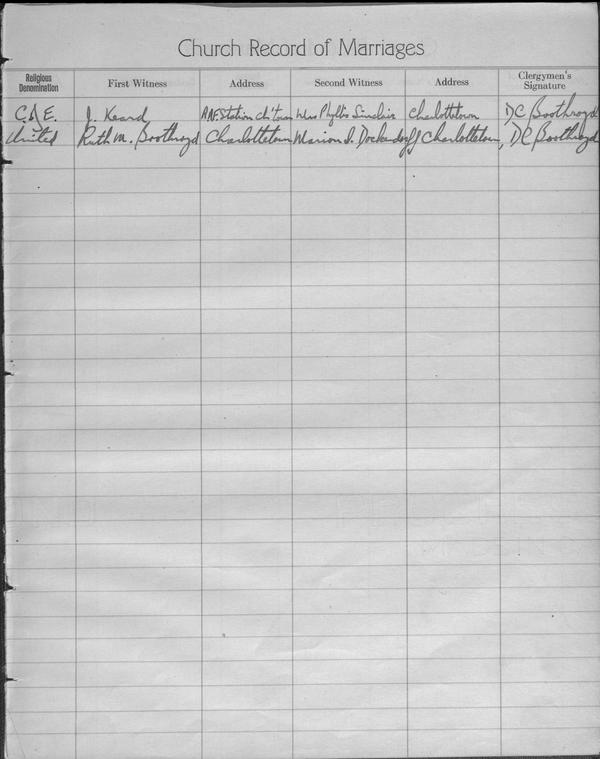 Church Record of Marriages
Religious Denomination First Witness Address Second Witness Address Clergymen's Signature
C. of E. J. Keard RAF Station Ch'town Mrs Phyllis Sinclair Charlottetown DC Boothroyd
United Ruth M. Boothroyd Charlottetown Marion I. Dockendorff Charlottetown, DC Boothroyd